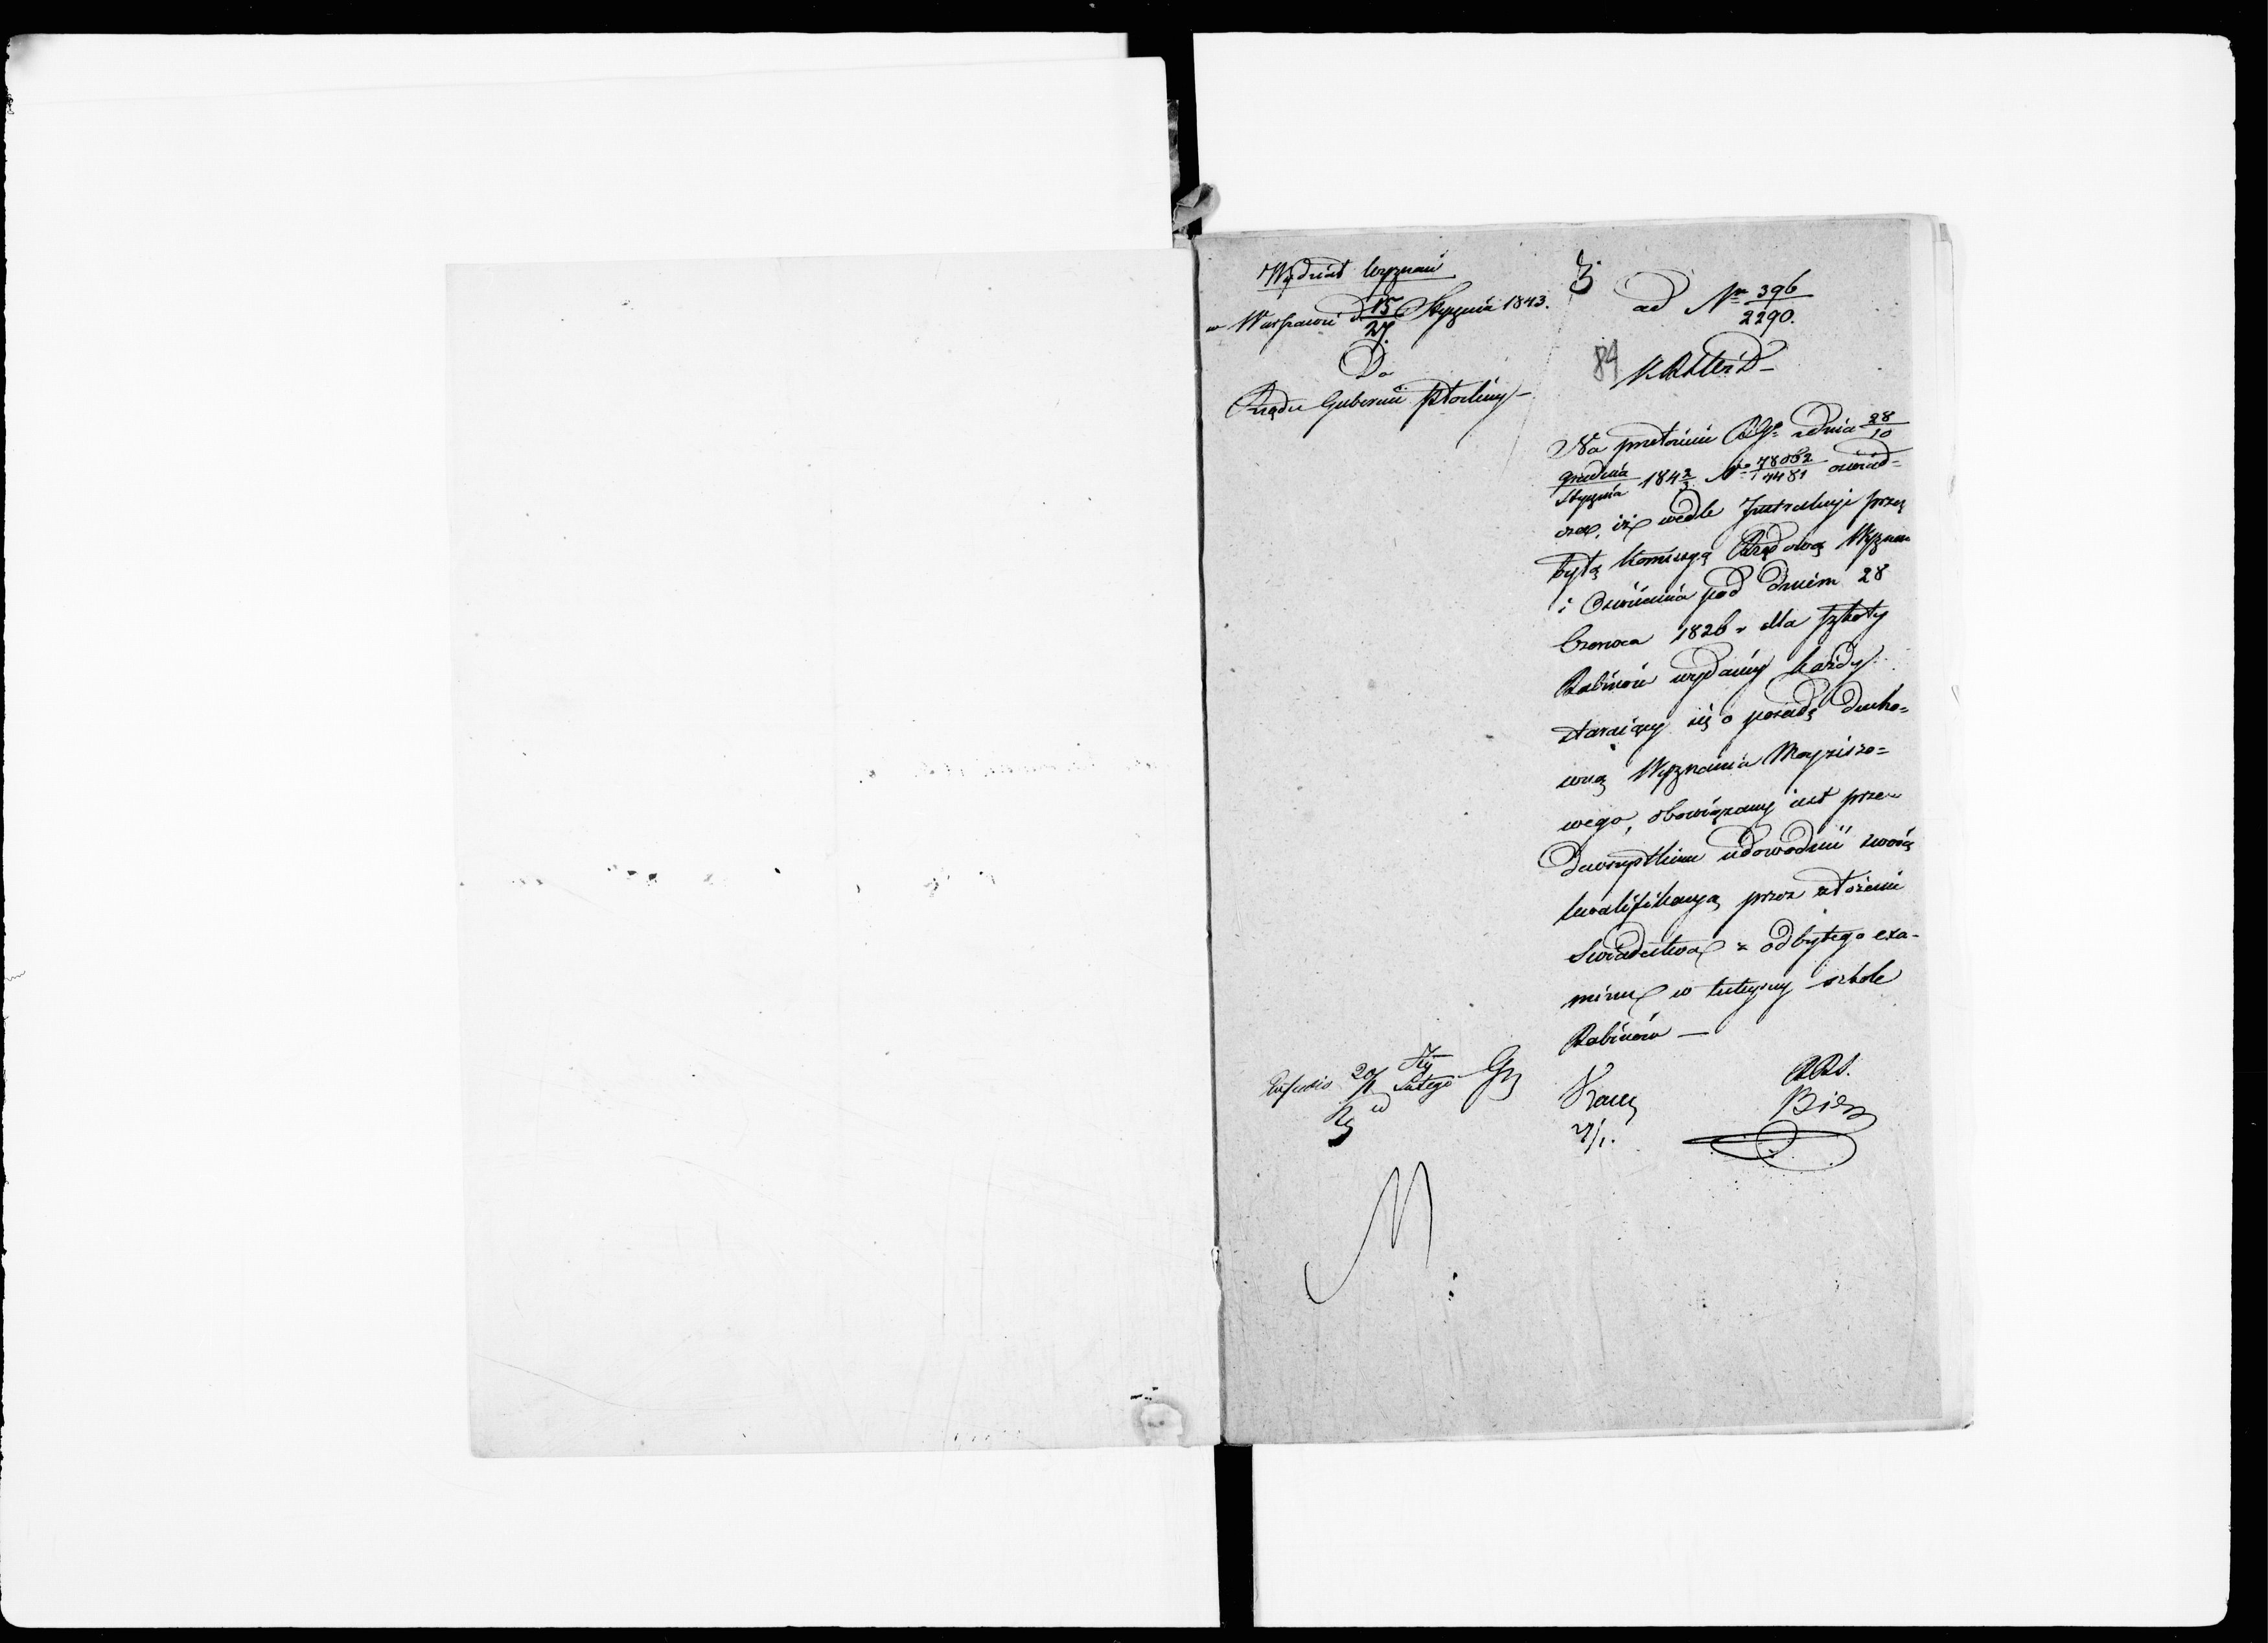 Wydział Wyznań
w Warszawie d. 15/27 Stycznia 1843.
Do
Rządu Gubernii Płockiey
3
ad Nr 396/2290.
84
K R S W i D
Na przełożenie RGo z dnia 28/10
grudnia/Stycznia 184 2/3 No 78052/7481 oświad=
cza, iż wedle Instrukcyi przez
byłą Kommissyą Rządową Wyznań
i Oświecenia pod dniem 28
Czerwca 1826 r dla szkoły
Rabinów wydaney każdy
staraiący się o posadę ducho=
wną Wyznania Moyżeszo=
wego, obowiązany iest prze
dewszystkiem udowodnić swoią
kwalifikacyą przez złożenie
Świadectwa z odbytego exa-
minu w tuteyszey szkole
Rabinów —
Expedio 20/1 Lutego
27/1.